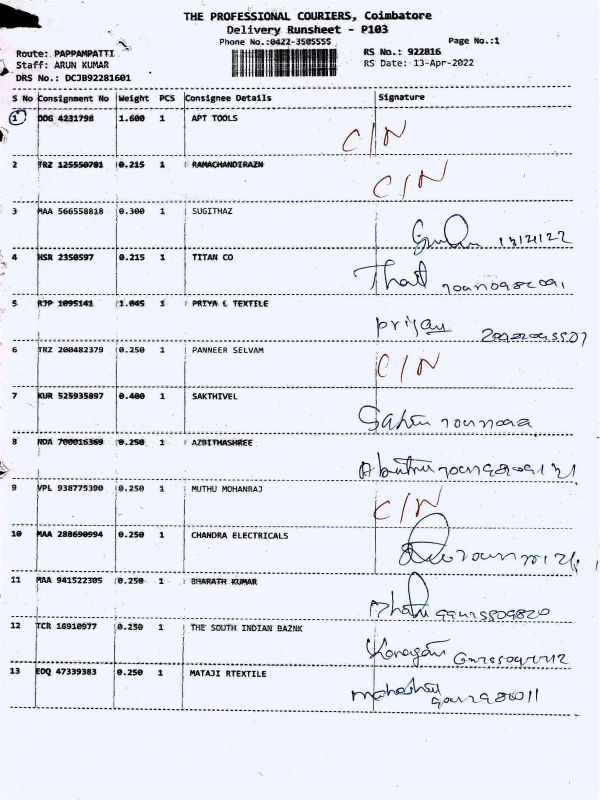 THE PROFESSIONAL COURIERS, Coimbatore
Delivery Runsheet - P103
Phone No.:0422-3505555 Page No.:1
Route: PAPPAMPATTI RS No.: 922816
Staff: ARUN KUMAR RS Date: 13-Apr-2022
DRS No.: DCJB92281601
S No Consignment No Weight PCS Consignee Details Signature
1 DDG 4231798 1.600 1 APT TOOLS
C/N
2 TRZ 125550781 0.215 1 RAMACHANDIRAZN
C/N
3 MAA 566558818 0.300 1 SUGITHAZ
4 HSR 2350597 0.215 1 TITAN CO
5 RJP 1095141 1.045 1 PRIYA L TEXTILE
priyan
6 TRZ 200482379 0.250 1 PANNEER SELVAM
C/N
7 KUR 525935897 0.400 1 SAKTHIVEL
8 NDA 700016369 0.250 1 AZBITHASHREE
9 VPL 938775390 0.250 1 MUTHU MOHANRAJ
C/N
10 MAA 288690994 0.250 1 CHANDRA ELECTRICALS
11 MAA 941522305 0.250 1 BHARATH KUMAR
12 TCR 16910977 0.250 1 THE SOUTH INDIAN BAZNK
13 EDQ 47339383 0.250 1 MATAJI RTEXTILE